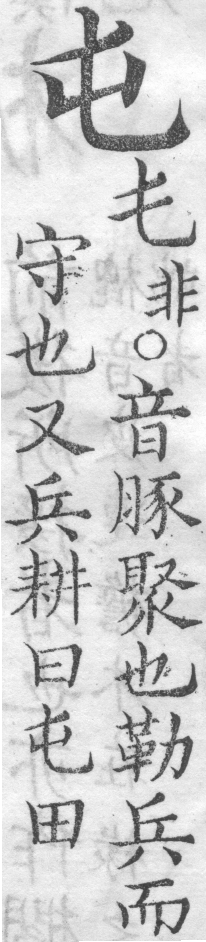 屯
乇非○音豚聚也勒兵而
守也又兵耕曰屯田